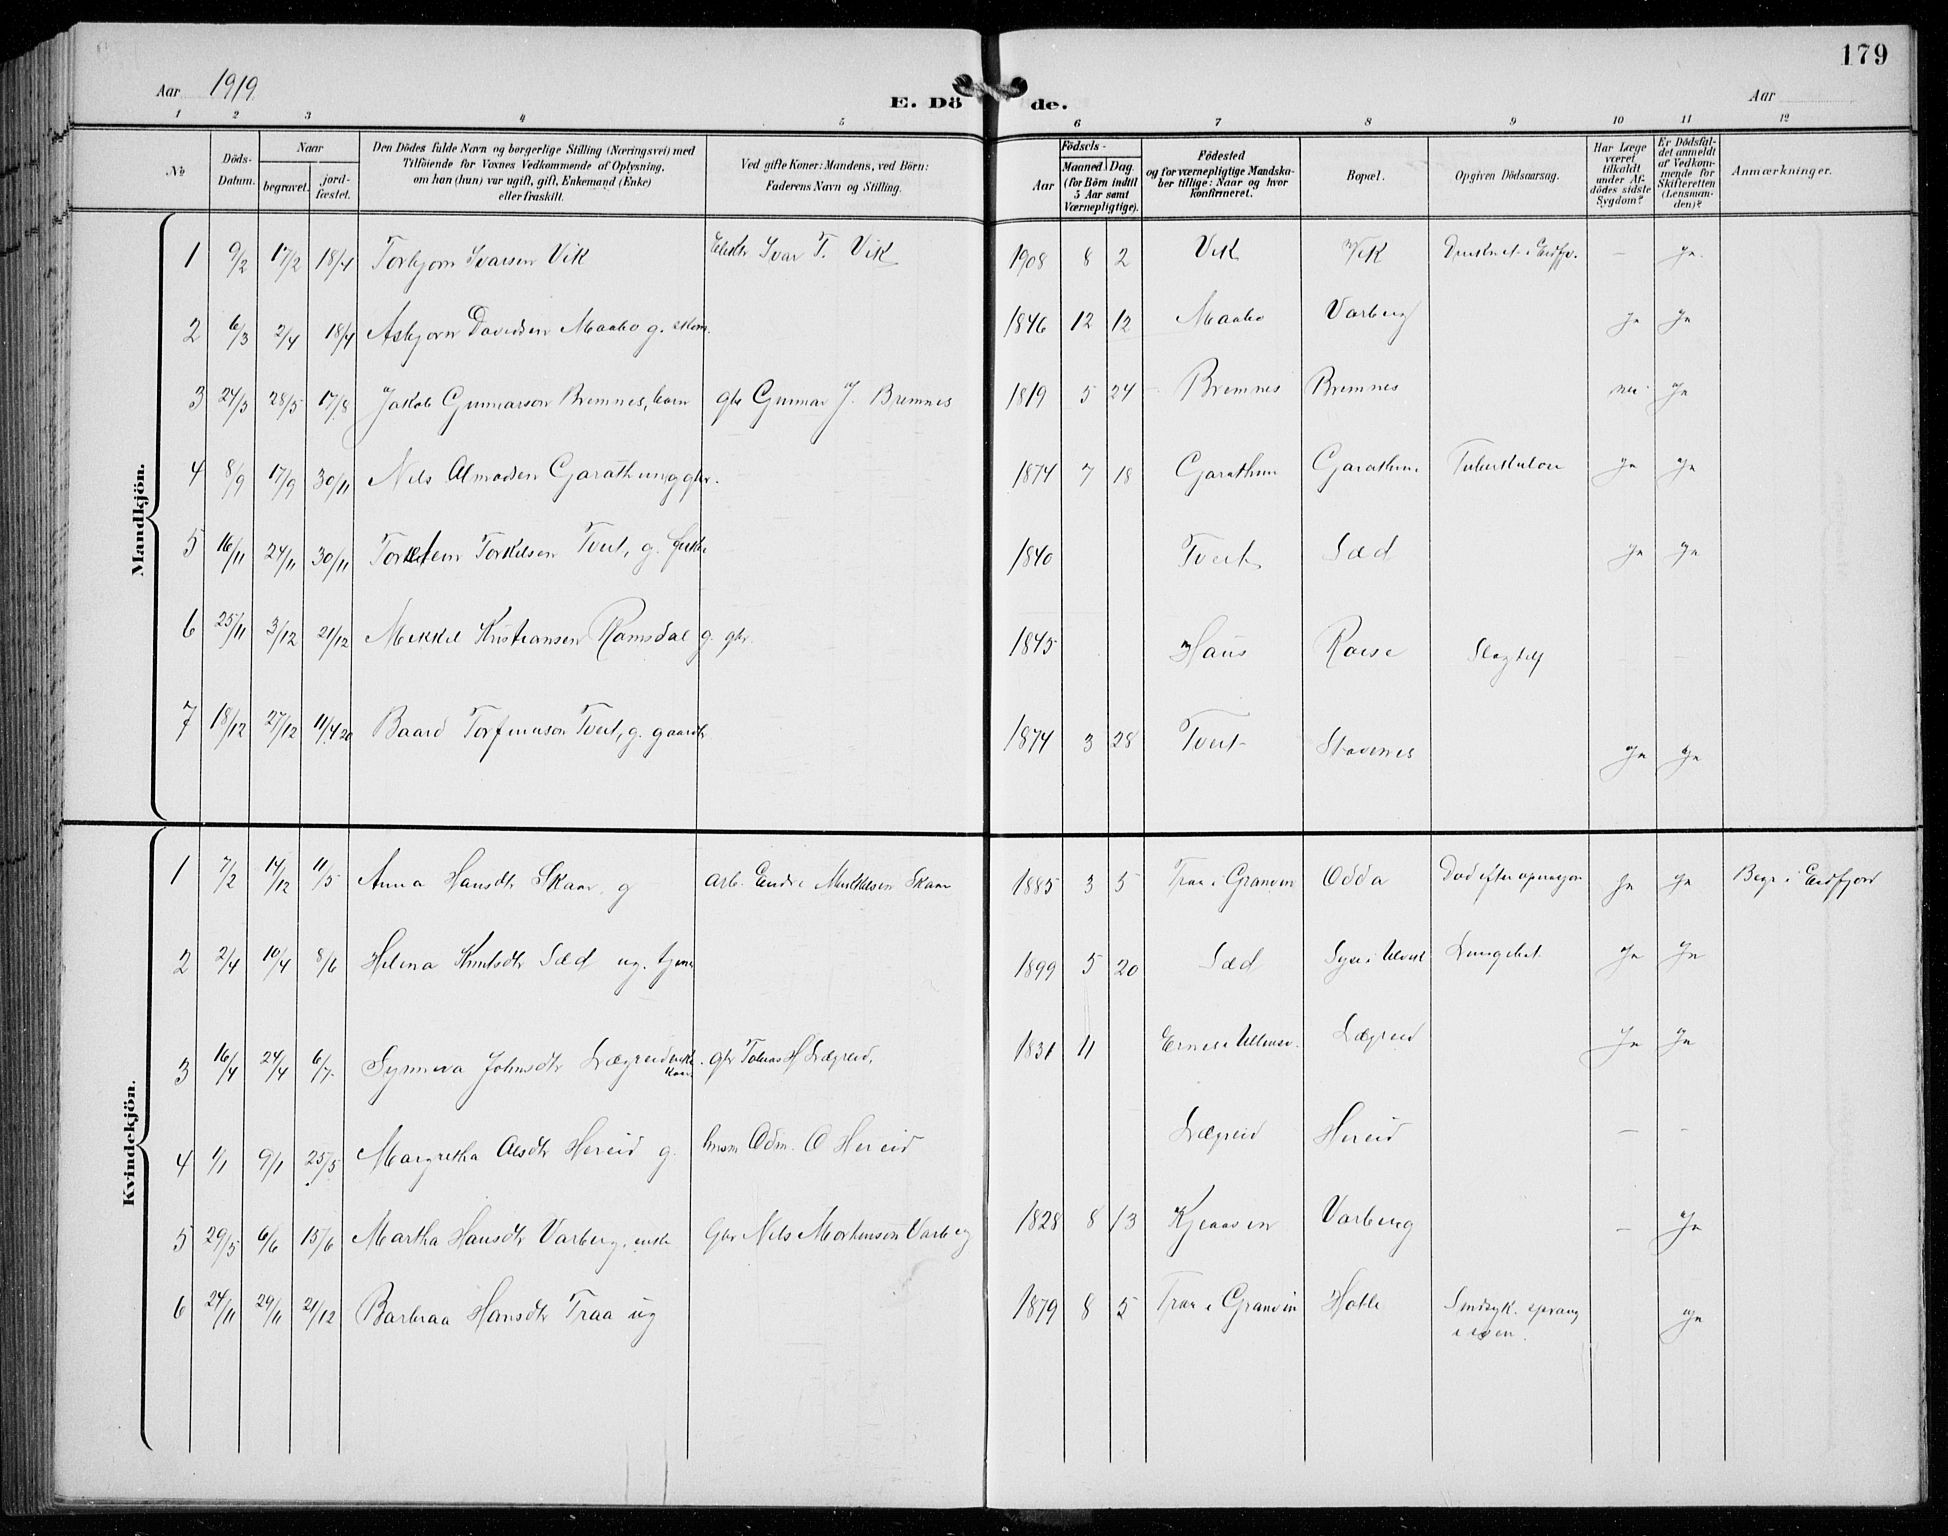 179
Aar 1919
E. Dö de.
Aar
1 2 3 4 5 6 7 8 9 10 11 12
No
Döds-Datum.
Naar
begravet.
jord-fæstet.
Den Dödes fulde Navn og borgerlige Stilling (Næringsvei) med
Tilföiende for Voxnes Vedkommende af Oplysning,
om han (hun) var ugift, gift, Enkemand (Enke)
eller fraskilt.
Ved gifte Koner: Mandens, ved Börn:
Faderens Navn og Stilling.
Aar
Födsels-
Maaned Dag
(for Börn indtil
5 Aar samt
Værnepligtige).
Födested
og for værnepligtige Mandska-
ber tillige: Naar og hvor
konfirmeret.
Bopæl.
Opgiven Dödsaarsag.
Har Læge
været
tilkaldt
under Af-
dödes sidste
Sygdom?
Er Dödsfal-
det anmeldt
af Vedkom-
mende for
Skifteretten
(Lensman-
den)?
Anmærkninger.
Mandkjön.
1 9/2 17/2 18/4 Torbjørn Ivarsen Vik Ivar T. Vik 1908 8 2 Vik Vik Druknet i Eidfj. — Ja
2 6/3 2/4 18/4 Asbjørn Davidsen Maabø g. 1846 12 12 Maabø Varberg Ja Ja
3 24/5 28/5 17/8 Jakob Gunnarson Bremnes, barn gbr Gunnar J. Bremnes 1819 5 24 Bremnes Bremnes nei Ja
4 8/9 17/9 30/11 Nils Almodsen Garathun, g gbr. 1874 7 18 Garathun Garathun Tuberkulose Ja Ja
5 16/11 24/11 30/11 Torkelsen Tveit, g. 1840 Tveit Sæd Ja Ja
6 25/11 3/12 21/12 Mikkel Kristiansen Ramsdal g. gbr. 1845 Haus Røise Slagtilf — —
7 18/12 27/12 11/4 20 Baard Torfinnson Tveit, g. gaardbr 1874 3 28 Tveit Stavenes Ja Ja
Kvindekjön.
1 7/2 14/12 11/5 Anna Hansdtr Skaar, g arb. Endre Mikkelsen Skaar 1885 3 5 Traa i Granvin Odda Død efter operasjon Ja Ja Begr i Eidfjord
2 2/4 10/4 8/6 Helena Knutsdtr Sæd ug. tjener 1899 5 20 Sæd Syse i Ulvik Lungebet. Ja Ja
3 16/4 24/4 6/7 Synneva Johnsdtr Lægreid gbr Tobias H Lægreid, 1831 11 Lægreid Ja Ja
4 1/1 9/1 25/5 Margretha Olsdtr Hereid g. O Hereid Lægreid Hereid — —
5 29/5 6/6 15/6 Martha Hansdtr Varberg, enke Gbr Nils Mortensen Varberg 1828 8 13 Kjeaasen Varberg — Ja
6 24/11 29/11 21/12 Barbraa Hansdtr Traa ug 1879 8 5 Traa i Granvin Holte Sindsyk. sprang
i Ja